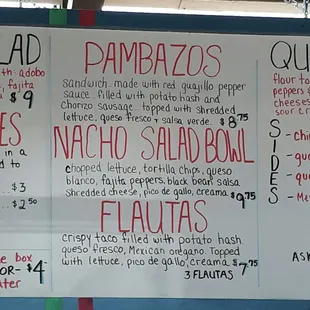 LAD
th adobo
fajita
$9
ES
in a
d to
$3
$2.50
e box
OR- $4
ater
PAMBAZOS
sandwich made with red guajillo pepper
sauce filled with potato hash and
chorizo sausage. topped with shredded
lettuce, queso fresco & salsa verde. $8.75
NACHO SALAD BOWL
chopped lettuce, tortilla chips, queso
blanco, fajita peppers, black bean salsa
shredded cheese, pico de gallo, creama $9.75
FLAUTAS
crispy taco filled with potato hash
queso fresco, Mexican oregano. Topped
with lettuce, pico de gallo, creama $7.75
3 FLAUTAS
QU
flour to
peppers &
cheeses
sour cr
SIDES
- chi
- que
- que
- Me
ASK